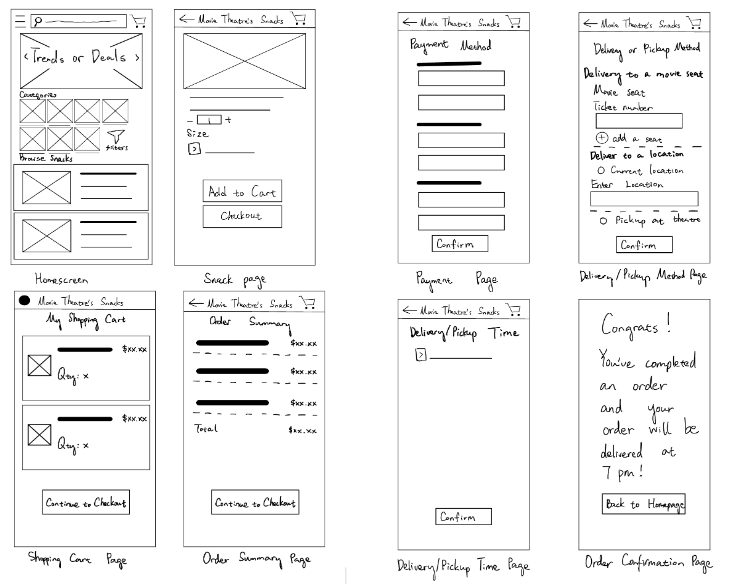 < Trends or Deals >
Categories
filters
Browse Snacks
Homescreen
← Movie Theatre's Snacks
- 1 +
Size
>
Add to Cart
Checkout
Snack page
← Movie Theatre's Snacks
Payment Method
Confirm
Payment Page
← Movie Theatre's Snacks
Delivery or Pickup Method
Delivery to a movie seat
Movie seat
Ticket number
+ add a seat
Deliver to a location
Current location
Enter Location
Pickup at theatre
Confirm
Delivery/Pickup Method Page
Movie Theatre's Snacks
My Shopping Cart
$xx.xx
Qty: x
$xx.xx
Qty: x
Continue to Checkout
Shopping Cart Page
← Movie Theatre's Snacks
Order Summary
$xx.xx
$xx.xx
$xx.xx
Total $xx.xx
Continue to Checkout
Order Summary Page
← Movie Theatre's Snacks
Delivery/Pickup Time
>
Confirm
Delivery/Pickup Time Page
Congrats!
You've completed
an order
and your
order will be
delivered at
7 pm!
Back to Homepage
Order Confirmation Page